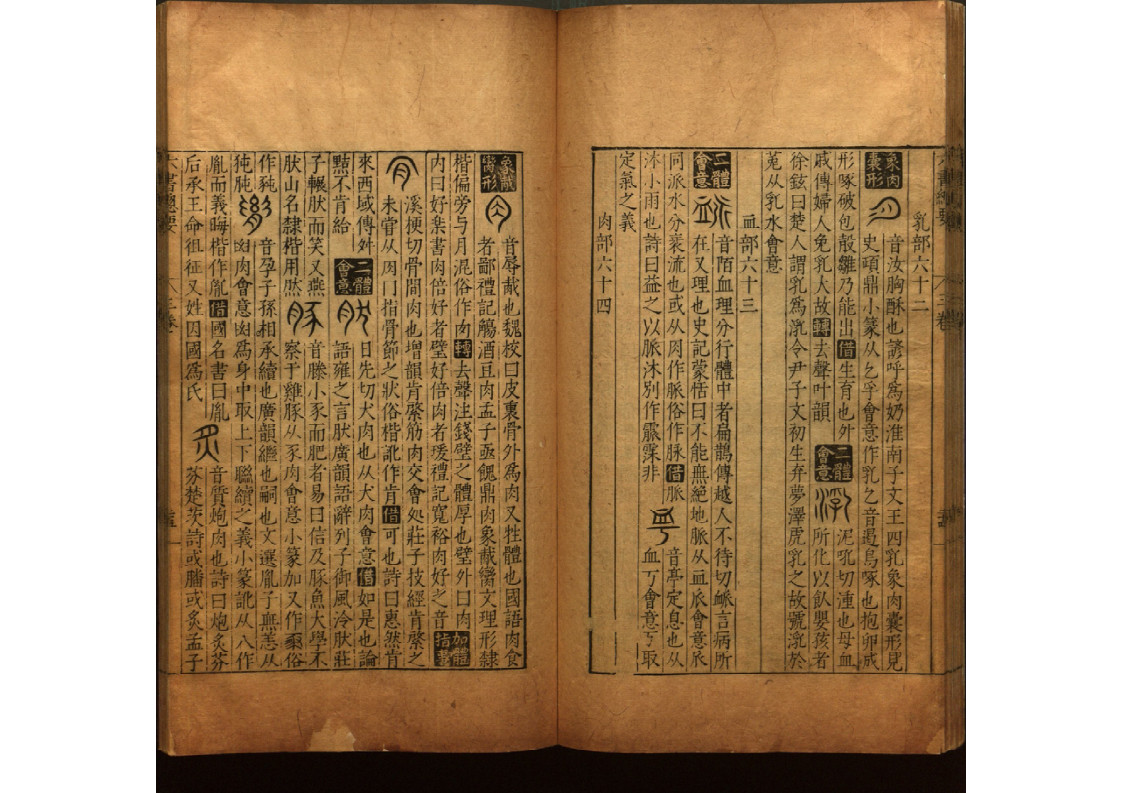 乳部六十二
象肉囊形 音汝胸酥也諺呼爲奶淮南子文王四乳象肉囊形見
史頑鼎小篆从乞孚會意作乳乞音邑鳥啄也抱卵成
形啄破包殻雛乃能出借生育也外
戚傳婦人免乳大故轉去聲叶韻
二體會意 泥吼切湩也母血
所化以飲嬰孩者
徐鉉曰楚人謂乳爲㳶令尹子文初生弃夢澤虎乳之故號㳶於
菟从乳水會意
血部六十三
二體會意 音陌血理分行體中者扁鵲傳越人不待切脈言病所
在又理也史記蒙恬曰不能無絕地脈从血𠂢會意𠂢
同派水分衺流也或从肉作脈俗作脉借脈
沐小雨也詩曰益之以脈沐別作霢霂非
音亭定息也从
血丂會意丂取
定氣之義
肉部六十四
象胾臠形 音辱胾也魏校曰皮裏骨外爲肉又牲體也國語肉食
者鄙禮記觴酒豆肉孟子亟餽鼎肉象胾臠文理形隸
楷偏旁与月混俗作肉轉去聲注錢璧之體厚也璧外曰肉
內曰好樂書肉倍好者璧好倍肉者瑗禮記寬裕肉好之音
加體指事
溪梗切骨間肉也增韻肯綮筋肉交會処莊子技經肯綮之
未嘗从肉冂指骨節之狀俗楷訛作肯借可也詩曰惠然肯
來西域傳舛
點不肯給
二體會意 日先切犬肉也从犬肉會意借如是也論
語雍之言肰廣韻語辭列子御風冷肰莊
子輾肰而笑又燕
肰山名隸楷用然
音滕小豕而肥者易曰信及豚魚大學不
察于雞豚从豕肉會意小篆加又作𢑓俗
作豘
㹠肫 音孕子孫相承續也廣韻繼也嗣也文選胤子無恙从
幽肉會意幽爲身中取上下聯續之義小篆訛从八作
胤而義晦楷作胤借國名書曰胤
后承王命徂征又姓因國爲氏
音質炮肉也詩曰炮炙芬
芬楚茨詩或膰或炙孟子
六書總要
三卷